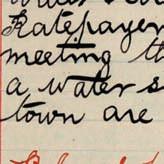 Ratepayer
meeting th
a water s
town are